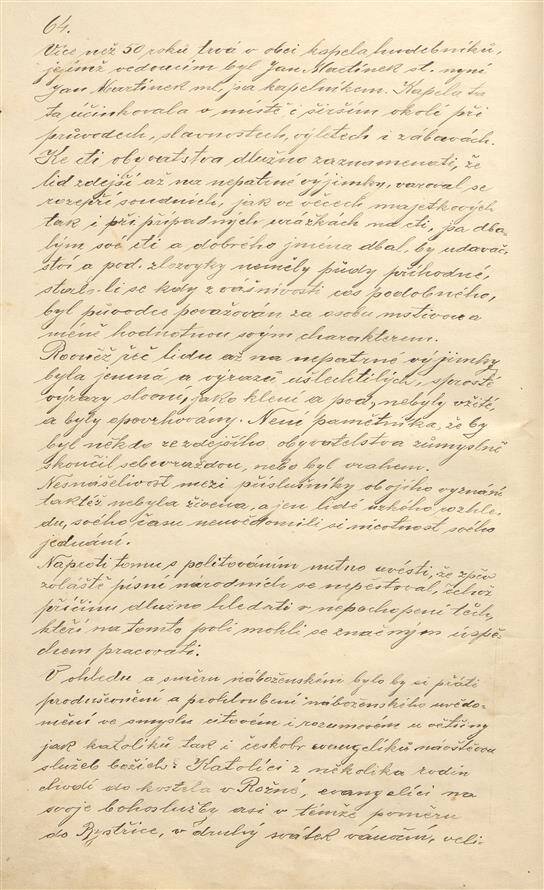 64.
Více než 50 roků trvá v obci kapela hudebníků,
jejímž vedoucím byl Jan Martínek st. nyní
Jan Martínek ml. jsa kapelníkem. Kapela ta
ta účinkovala v místě i širším okolí při
průvodech, slavnostech, výletech i zábavách.
Ke cti obyvatstva dlužno zaznamenati, že
lid zdejší až na nepatrné výjimky, varoval se
rozepří soudních, jak ve věcech majetkových
tak i při případných urážkách na cti, jsa dba-
lým své cti a dobrého jména dbal, by udavač-
ství a pod. zlozvyky neměly půdy příhodné,
stalo-li se kdy z vášnivosti cos podobného,
byl původce považován za osobu mstivou a
méně hodnotnou svým charakterem.
Rovněž řeč lidu až na nepatrné výjimky
byla jemná a výrazů ušlechtilých, sprosté
výrazy slovní, jako klení a pod, nebyly vžité,
a byly opovrhovány. Není pamětníka, že by
byl někdo ze zdejšího obyvatelstva zúmyslně
skončil sebevraždou, nebo byl vrahem.
Nesnášelivost mezi příslušníky obojího vyznání
taktéž nebyla živena, a jen lidé úzkého rozhle-
du, svého času neuvědomili si nicotnost svého
jednání.
Naproti tomu s politováním nutno uvésti, že zpěv
zvláště písní národních se nepěstoval, čehož
příčinu dlužno hledati v nepochopení těch,
kteří na tomto poli mohli se značným úspě-
chem pracovati.
V ohledu a směru náboženském bylo by si přáti
produševnění a prohloubení náboženského uvědo-
mění ve smyslu citovém i rozumovém u většiny
jak katolíků tak i českobr evangelíků návštěvou
služeb božích: Katolíci z několika rodin
chodí do kostela v Rožné, evangelíci na
svoje bohoslužby asi v témže poměru
do Bystřice, v druhý svátek vánoční, veli-